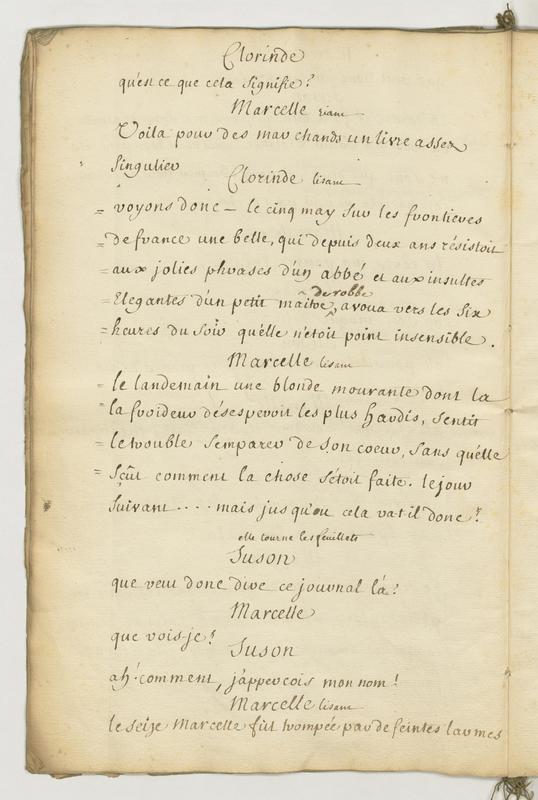 Clorinde
qu'est ce que cela signifie?
Marcelle riant
Voila pour des marchands un livre assez
singulier
Clorinde lisant
= voyons donc — le cinq may sur les frontieres
= de france une belle, qui depuis deux ans résistoit
= aux jolies phrases d'un abbé et aux insultes
de robbe
= Elegantes d'un petit maitre, avoua vers les six
= heures du soir qu'elle n'etoit point insensible.
Marcelle lisant
= le landemain une blonde mourante dont la
= la froideur désesperoit les plus hardis, sentit
= le trouble s'emparer de son coeur, sans qu'elle
= sçût comment la chose s'étoit faite. le jour
suivant .... mais jusqu'ou cela vat il donc?
elle tourne les feuillets
Suson
que veut donc dire ce journal là?
Marcelle
que vois-je?
Suson
ah! comment, j'apperçois mon nom!
Marcelle lisant
le seize Marcelle fut trompée par de feintes larmes